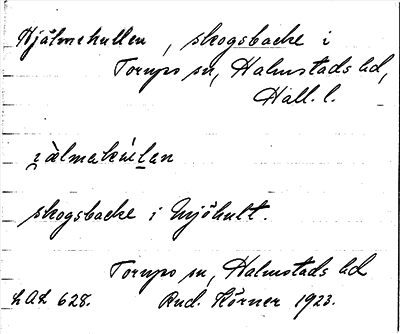 Hjälmekullen, skogsbacke i
Torups sn, Halmstads hd,
Hall. l.
jälmekúlan
skogsbacke i Mjöhult.
Torups sn, Halmstads hd
LAL 628. Rud. Körner 1923.